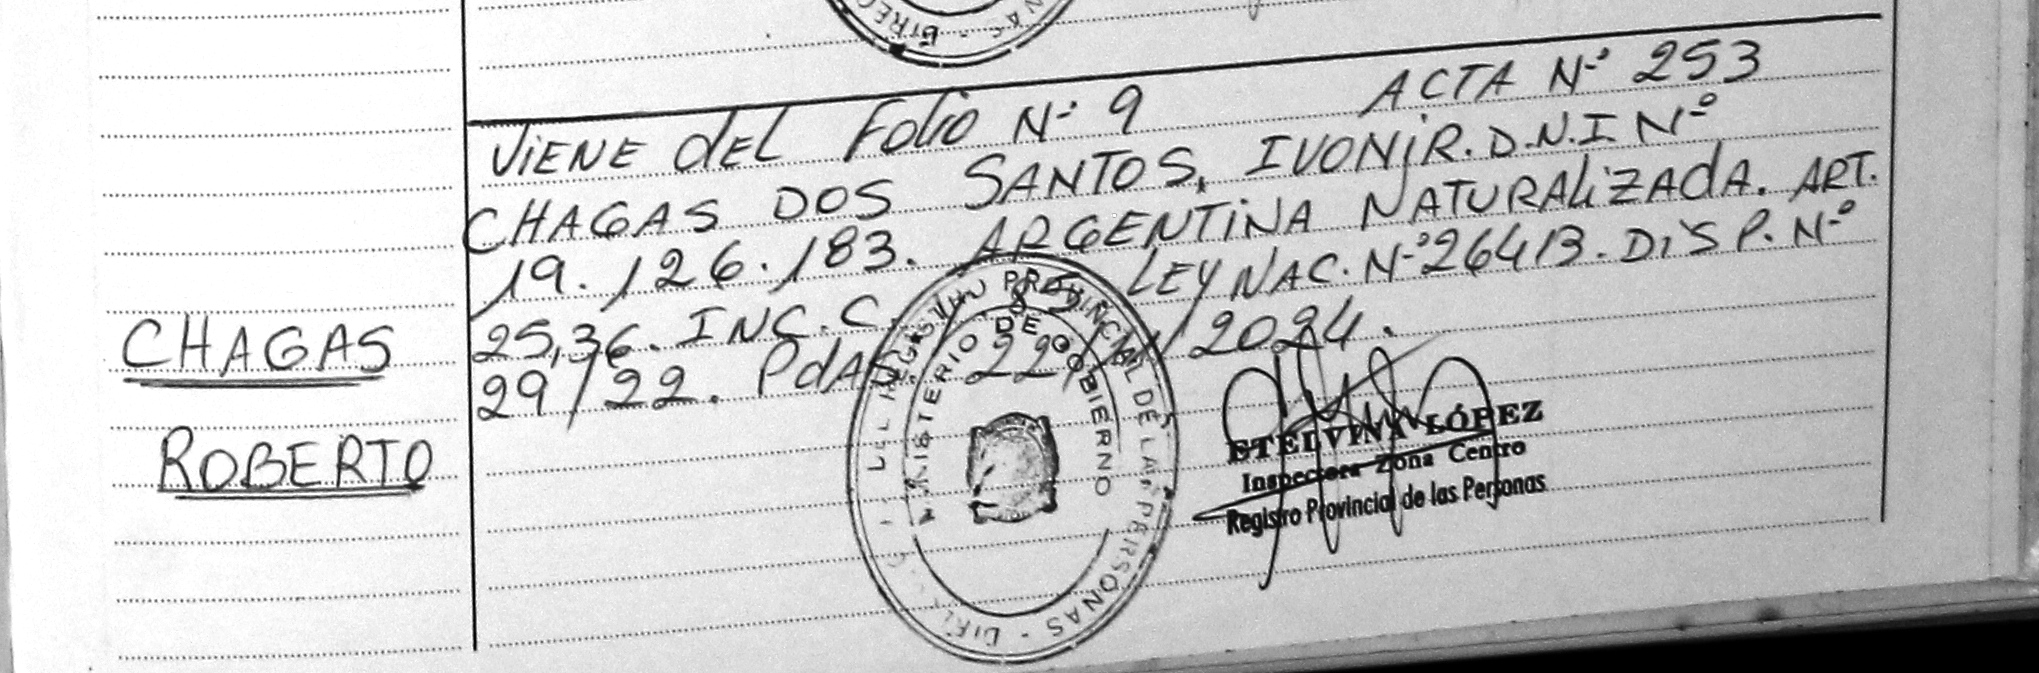 VIENE dEL FoLio N-° 9 ACTA N-° 253
CHAGAS DOS SANTOS, IVONiR. D.N.I N-°
19.126.183. ARGENTiNA NATURALiZADA. ART.
25,36. INC. C. 85 LEY NAC. N-° 26413. DiSP. N-°
29/22. PdAS. 22/ /2024.
CHAGAS
ROBERTO
REGISTRO PROVINCIAL DE LAS PERSONAS
MINISTERIO DE GOBIERNO
ETELVINA LÓPEZ
Inspectora Zona Centro
Registro Provincial de las Personas